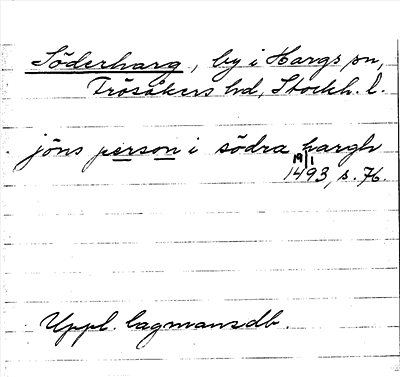 Söderharg, by i Hargs sn,
Frösåkers hd, Stockh. l.
jöns person i södra hargh
19/1
1493, s. 76.
Uppl. lagmansdb.